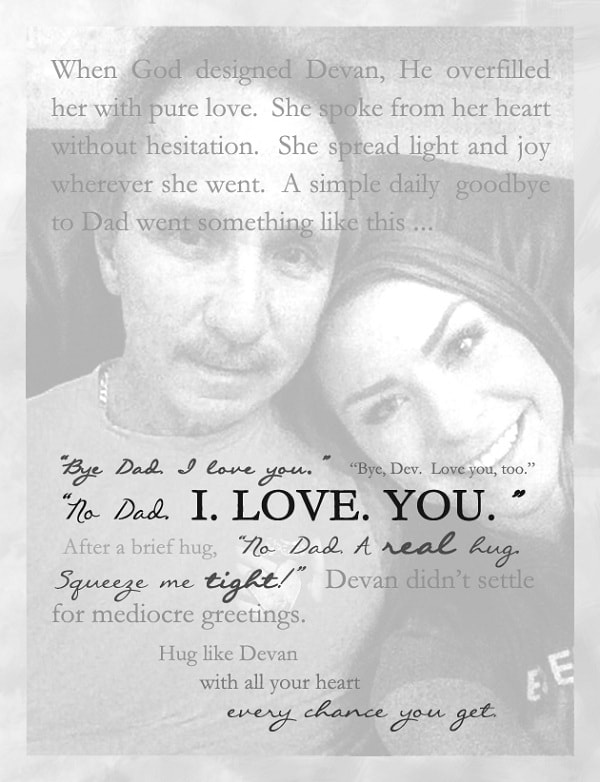 When God designed Devan, He overfilled
her with pure love. She spoke from her heart
without hesitation. She spread light and joy
wherever she went. A simple daily goodbye
to Dad went something like this ...
“Bye Dad. I love you.” “Bye, Dev. Love you, too.”
“No Dad. I. LOVE. YOU. ”
After a brief hug, “No Dad. A real hug.
Squeeze me tight!” Devan didn’t settle
for mediocre greetings.
Hug like Devan
with all your heart
every chance you get.
BE